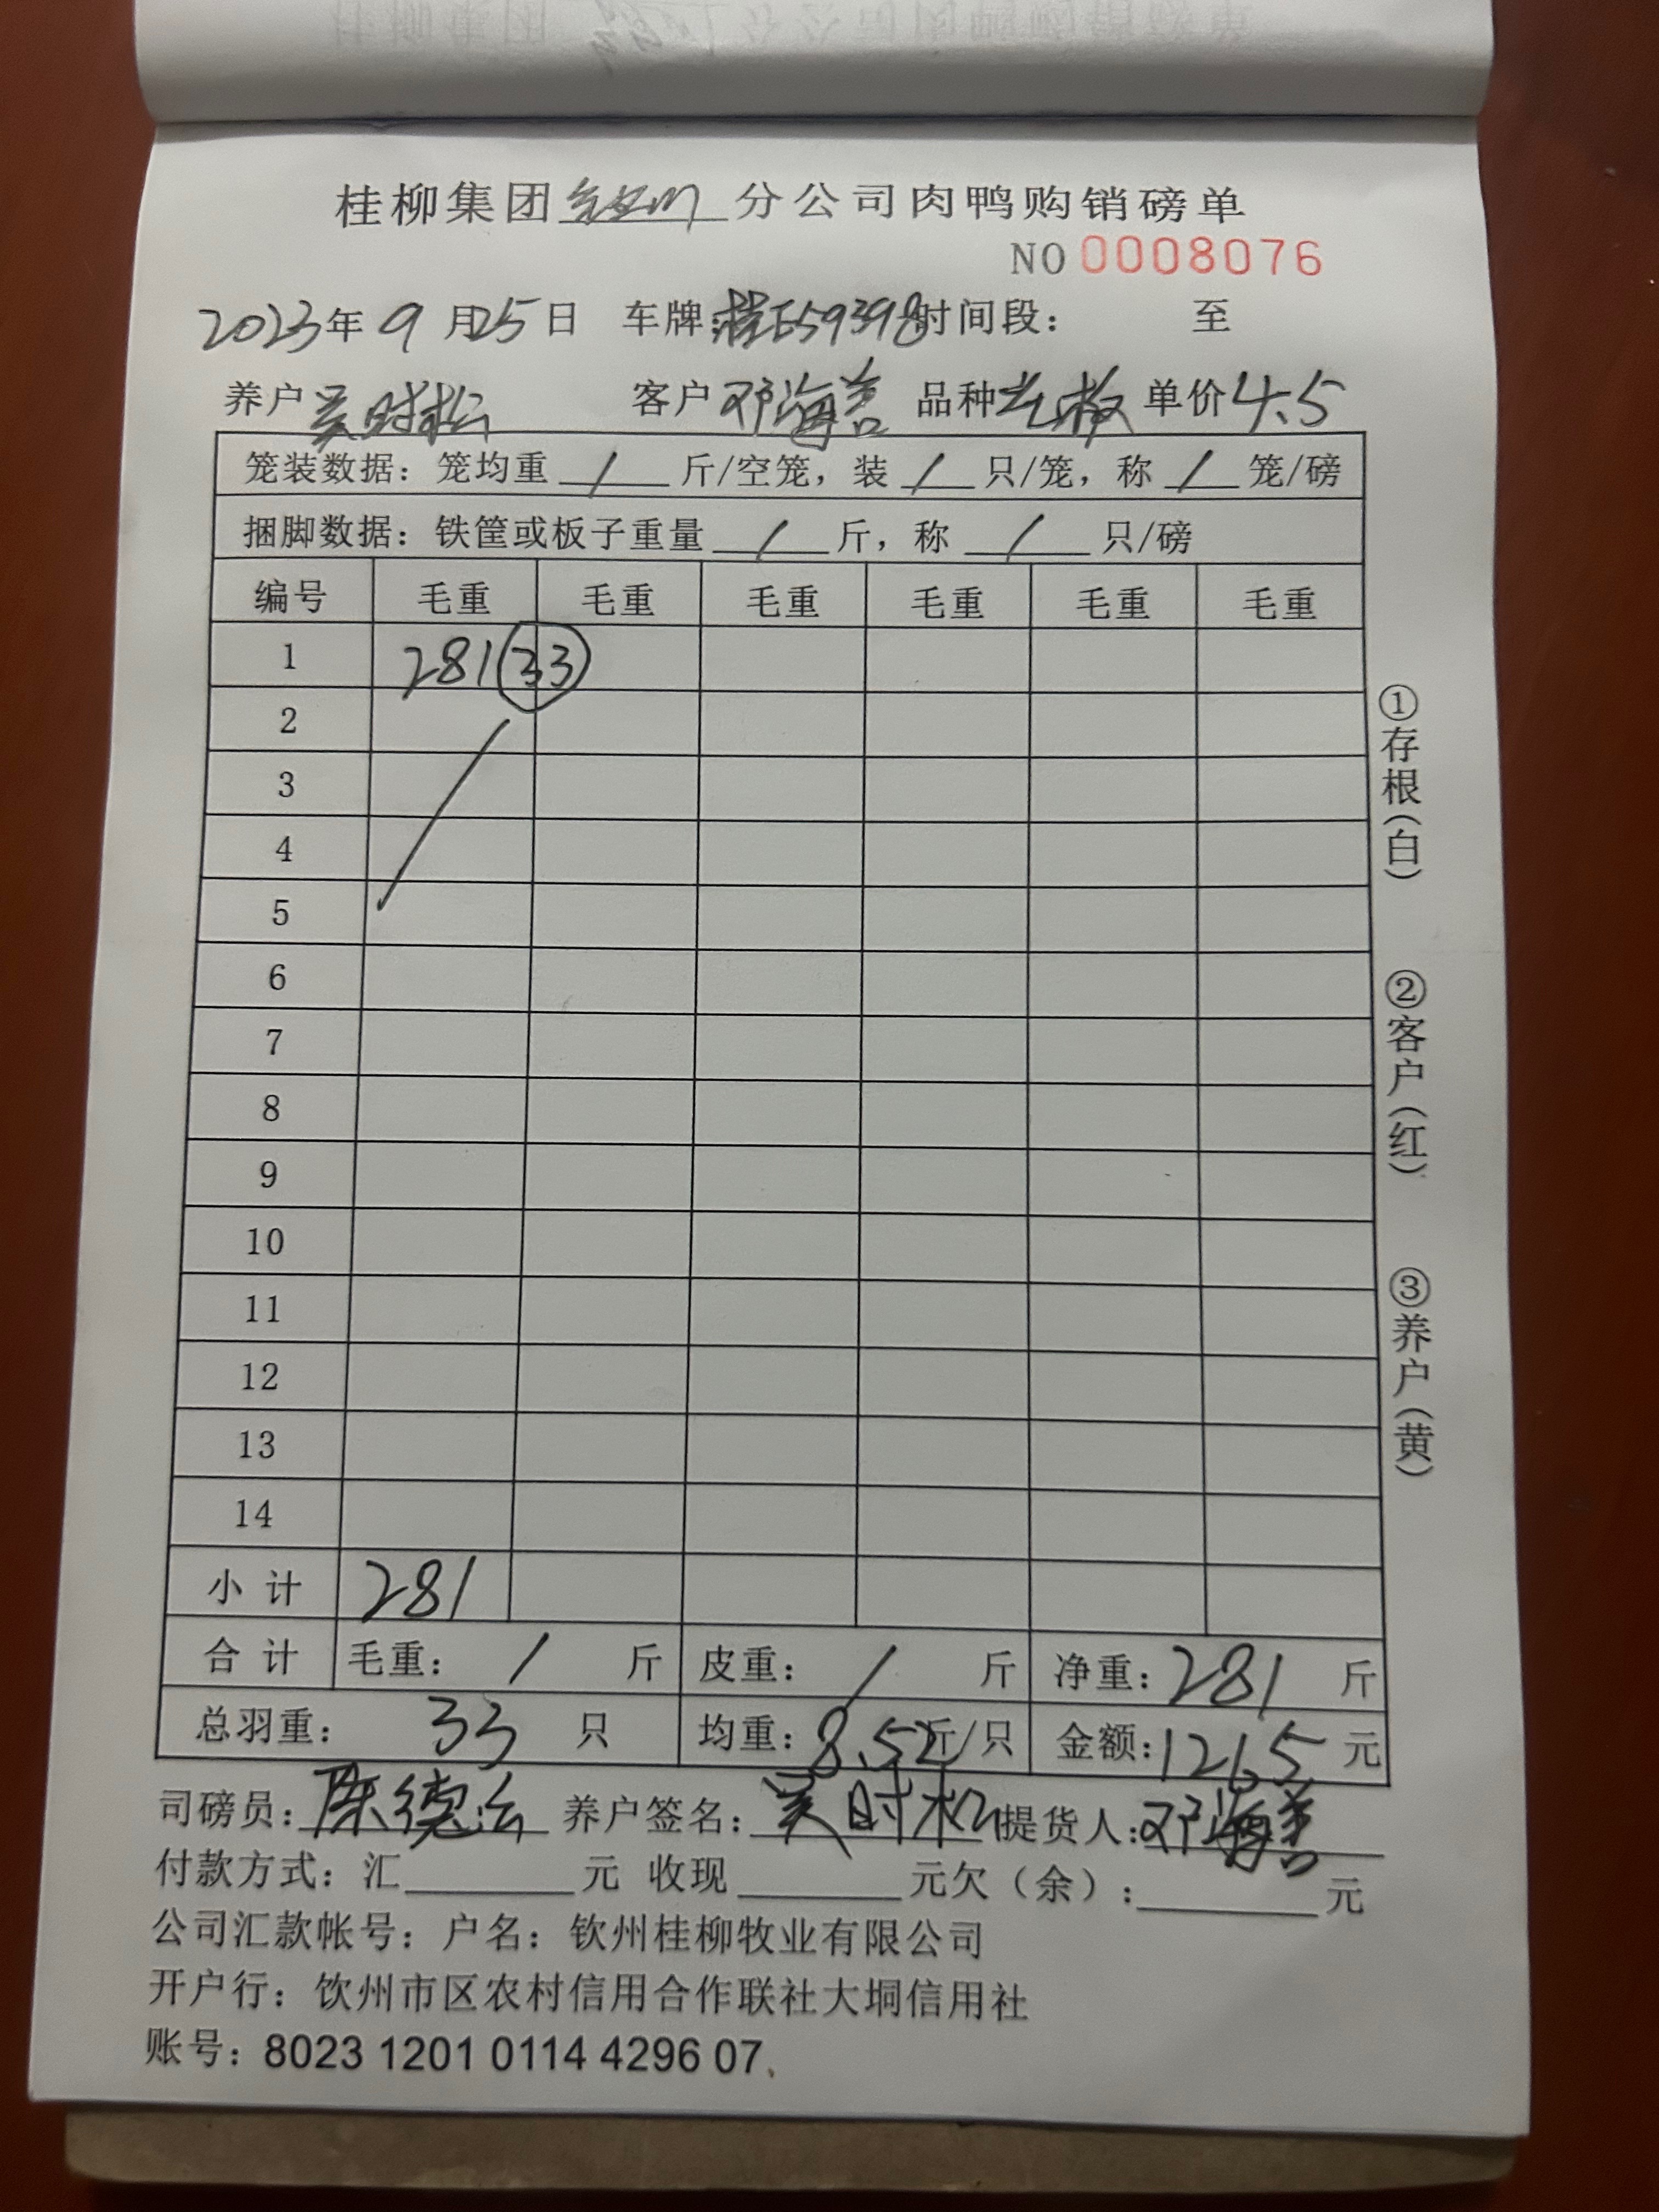 桂柳集团钦州分公司肉鸭购销磅单
NO 0008076
2023年9月25日 车牌:桂E59398时间段: 至
养户吴时松 客户邓海善 品种 单价4.5
笼装数据:笼均重 / 斤/空笼,装 / 只/笼,称 / 笼/磅
捆脚数据:铁筐或板子重量 / 斤,称 / 只/磅
编号 毛重 毛重 毛重 毛重 毛重 毛重
1 281 33
2
3
4
5
6
7
8
9
10
11
12
13
14
小计 281
合计 毛重: / 斤 皮重: / 斤 净重:281斤
总羽重: 33 只 均重:8.52斤/只 金额:1265元
司磅员:陈德 养户签名:吴时松 提货人:邓海善
付款方式:汇 元 收现 元欠(余): 元
公司汇款帐号:户名:钦州桂柳牧业有限公司
开户行:饮州市区农村信用合作联社大垌信用社
账号:8023 1201 0114 4296 07
①存根(白) ②客户(红) ③养户(黄)